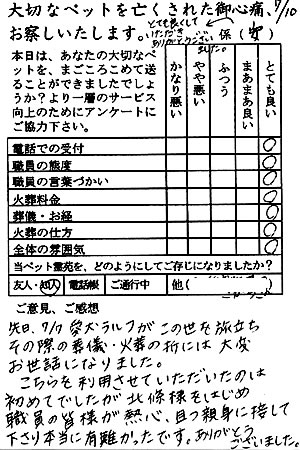 大切なペットを亡くされた御心痛、7/10
お察しいたします。
とても良くして
いただき
ありがとうござい
ました。
係(安)
本日は、あなたの大切なペ
ットを、まごころこめて送
ることができましたでしょ
うか?より一層のサービス
向上のためにアンケートに
ご協力下さい。
かなり悪い
やや悪い
ふつう
まあまあ良い
とても良い
電話での受付 ○
職員の態度 ○
職員の言葉づかい ○
火葬料金 ○
葬儀・お経 ○
火葬の仕方 ○
全体の雰囲気 ○
当ペット霊苑を、どのようにしてご存じになりましたか?
友人・知人 電話帳 ご通行中 他(
ご意見、ご感想
先日、7/7 愛犬ラルフがこの世を旅立ち
その際の葬儀・火葬の折には大変
お世話になりました。
こちらを利用させていただいたのは
初めてでしたが北條様をはじめ
職員の皆様が熱心、且つ親身に接して
下さり本当に有難かったです。ありがとう
ございました。